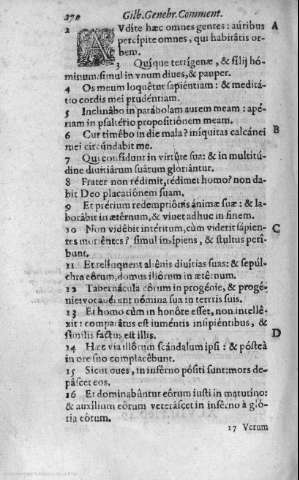 270 Gilb. Genebr. Comment.
2 AVdíte hæc omnes gentes: áuribus A
percípite omnes, qui habitátis or-
bem.
3 Quíque terrígenæ, & fílij hó-
minum: simul in vnum díues, & pauper.
4 Os meum loquétur sapiéntiam: & meditá-
tio cordis mei prudéntiam.
5 Inclinábo in parábolam aurem meam: apé-
riam in psaltério propositiónem meam.
6 Cur timébo in die mala? iníquitas calcánei B
mei circúndabit me.
7 Qui confídunt in virtúte sua: & in multitú-
dine diuitiárum suárum gloriántur.
8 Frater non rédimit, rédimet homo? non da-
bit Deo placatiónem suam.
9 Et prétium redemptiónis ánimæ suæ: & la-
borábit in ætérnum, & viuet adhuc in finem.
10 Non vidébit intéritum, cùm víderit sapién- C
tes moriéntes? simul insípiens, & stultus perí-
bunt.
11 Et relínquent aliénis diuítias suas: & sepúl-
chra eórum, domus illórum in ætérnum.
12 Tabernácula eórum in progénie, & progé-
nie: vocauérunt nómina sua in terris suis.
13 Et homo cùm in honóre esset, non intellé-
xit: comparátus est iuméntis insipiéntibus, &
símilis factus est illis. D
14 Hæc via illórum scándalum ipsi: & pósteà
in ore suo complacébunt.
15 Sicut oues, in inférno pósiti sunt: mors de-
páscet eos.
16 Et dominabúntur eórum iusti in matutíno:
& auxílium eórum veteráscet in inférno à gló-
ria eórum.
17 Verum